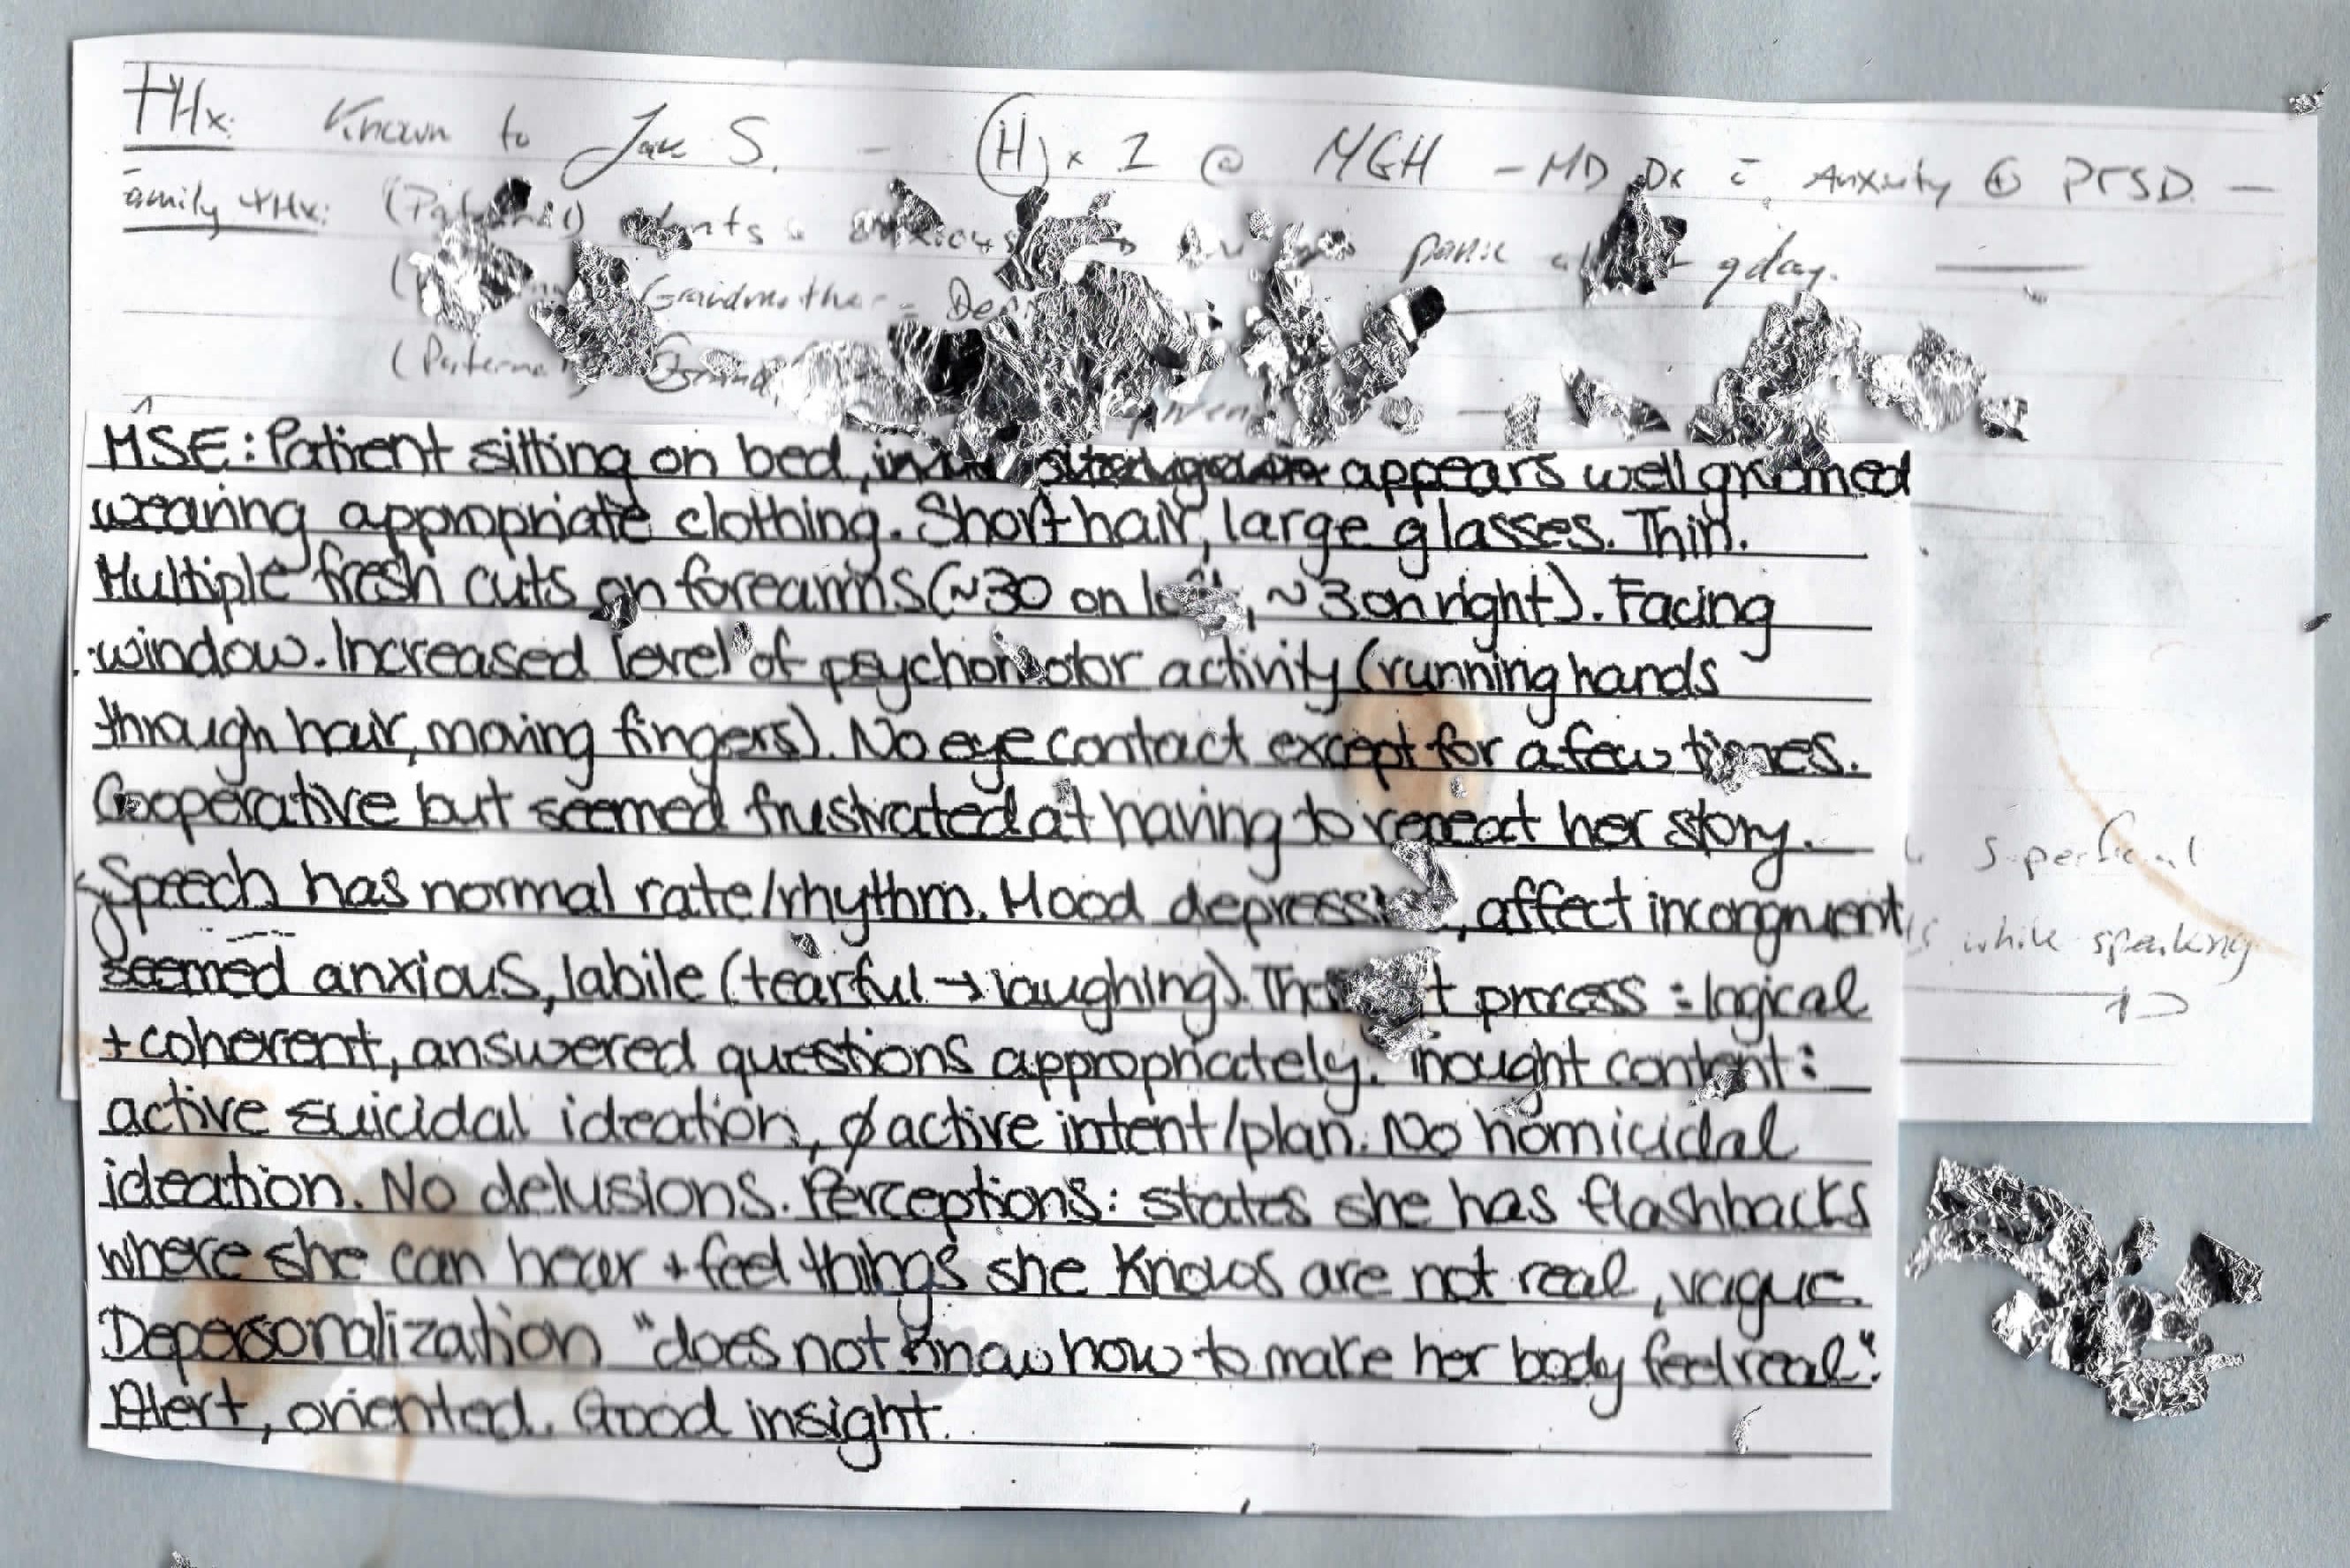 ΨHx: Known to Jake S. – (H) x 1 @ MGH – MD Dx c̄ Anxiety ⊕ PTSD –
Family ΨHx: (Paternal) anxious panic qday.
Grandmother =
(Paternal)
MSE: Patient sitting on bed, appears well groomed
wearing appropriate clothing. Short hair, large glasses. Thin.
Multiple fresh cuts on forearms (~30 on left, ~3 on right). Facing
window. Increased level of psychomotor activity (running hands
through hair, moving fingers). No eye contact except for a few times.
Cooperative but seemed frustrated at having to repeat her story.
superficial
Speech has normal rate/rhythm. Mood , affect incongruent
while speaking
seemed anxious, labile (tearful → laughing). Thought process : logical
+ coherent, answered questions appropriately. Thought content :
active suicidal ideation, ∅ active intent/plan. No homicidal
ideation. No delusions. Perceptions : states she has flashbacks
where she can hear + feel things she knows are not real, vague.
Depersonalization "does not know how to make her body feel real".
Alert, oriented. Good insight.